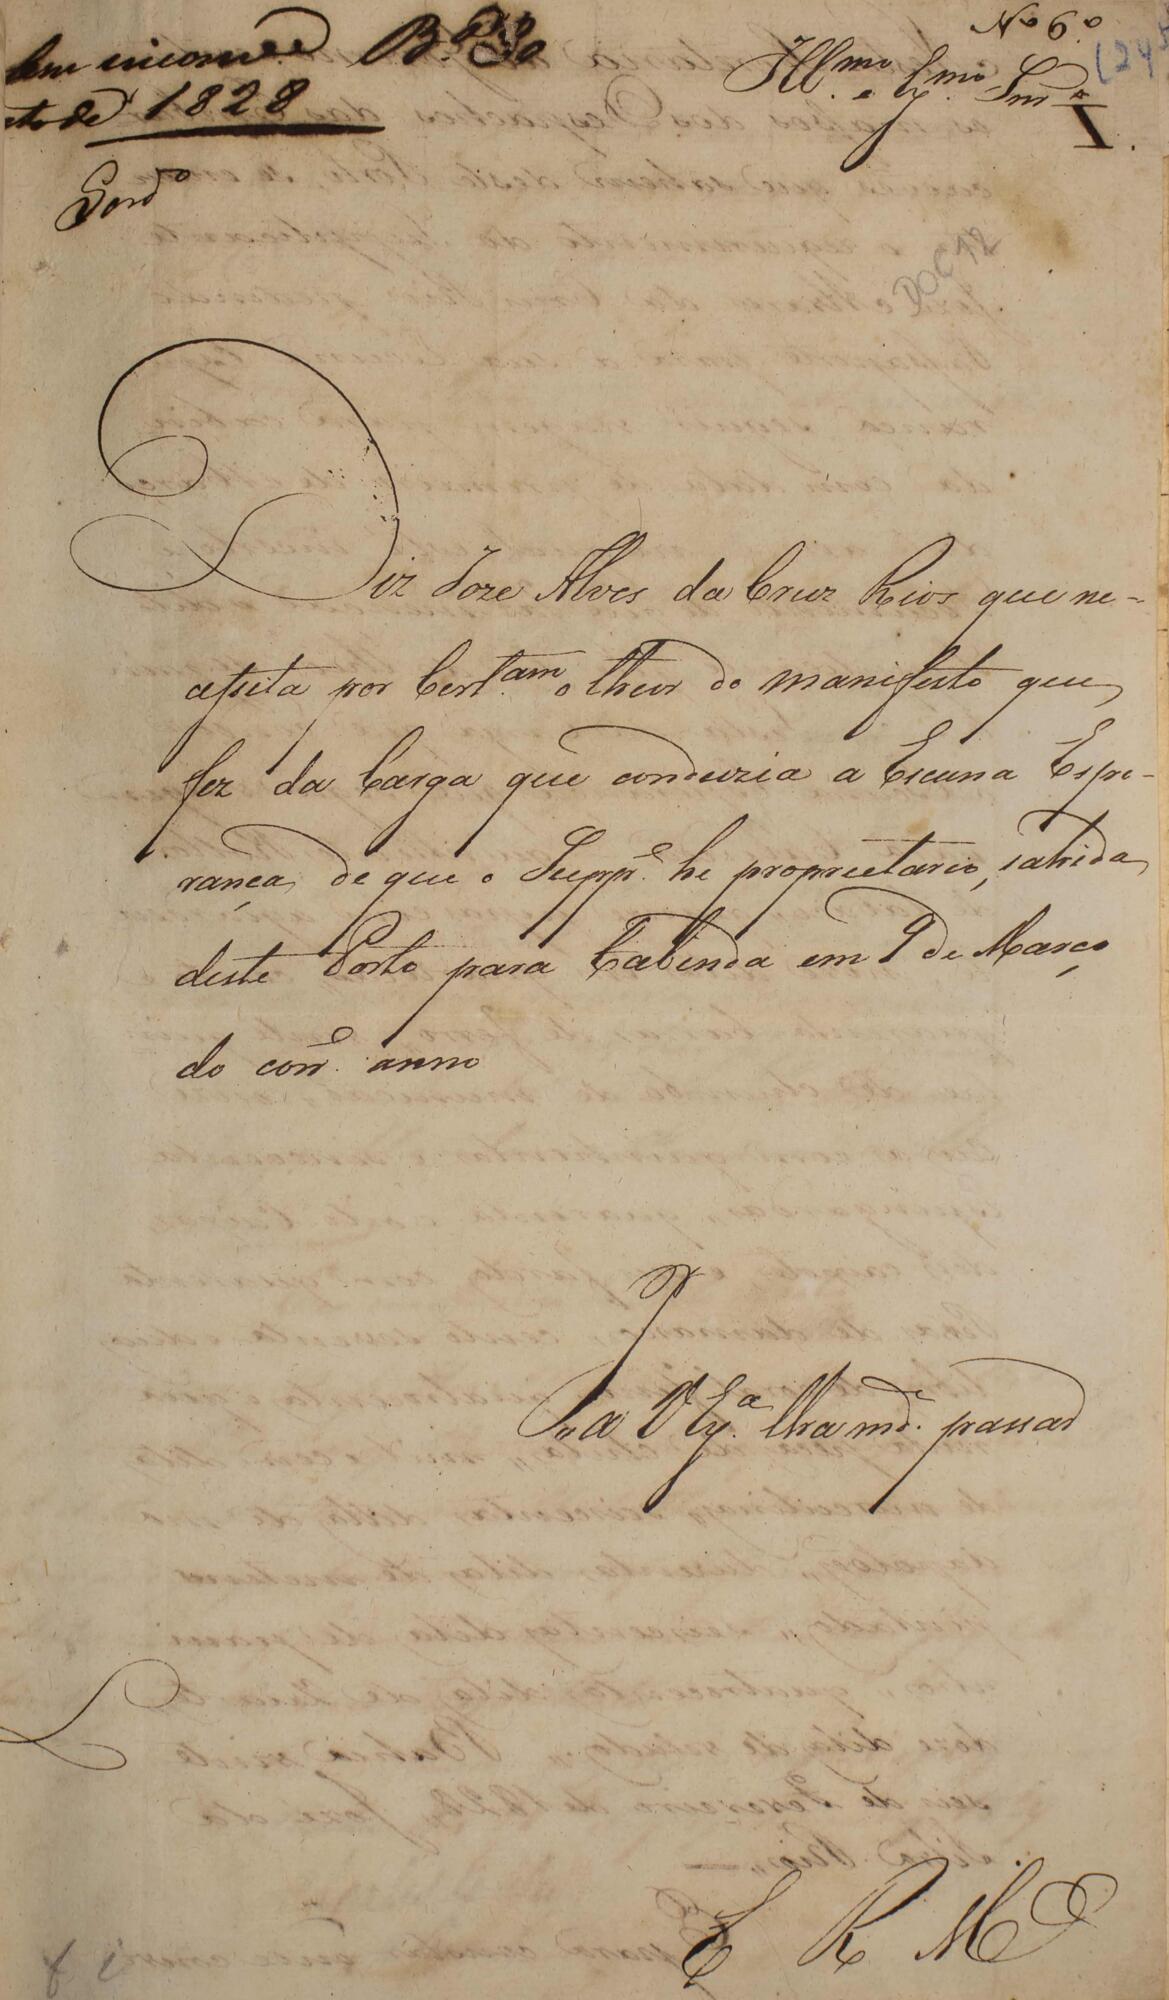 Nº 6º
(24
Illmo. e Exmo. Snr
1.
sem inconve.
to de 1828
Gordo
DOC 12
Diz Joze Alves da Cruz Rios que ne-
cessita por Certam. o theor do manifesto que
fez da Carga que conduzia a Escuna Espe-
rança, de que o Suppe. he proprietario, sahida
deste Porto para Cabinda em 9 de Março
do corre. anno
P
a V Exa. lha mde. passar
E R Mce